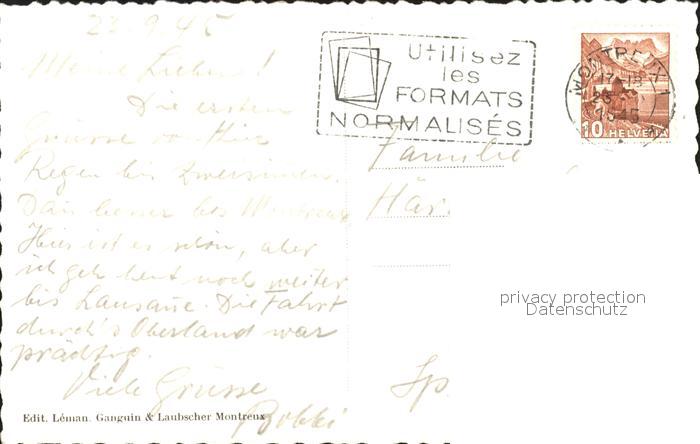 23.9.45
Meine Lieben!
Die ersten
Grüsse von hier
Regen bis Zweisimmen.
Dann besser bis Montreux
Hier ist es schön, aber
ich geh heut noch weiter
bis Lausanne. Die Fahrt
durch's Oberland war
prächtig.
Viele Grüsse
Bobbi
Edit. Léman. Ganguin & Laubscher Montreux
Utilisez
les
FORMATS
NORMALISÉS
MONTREUX 1
17-18
1945
10 HELVETIA
Familie
Här
Sp
privacy protection
Datenschutz